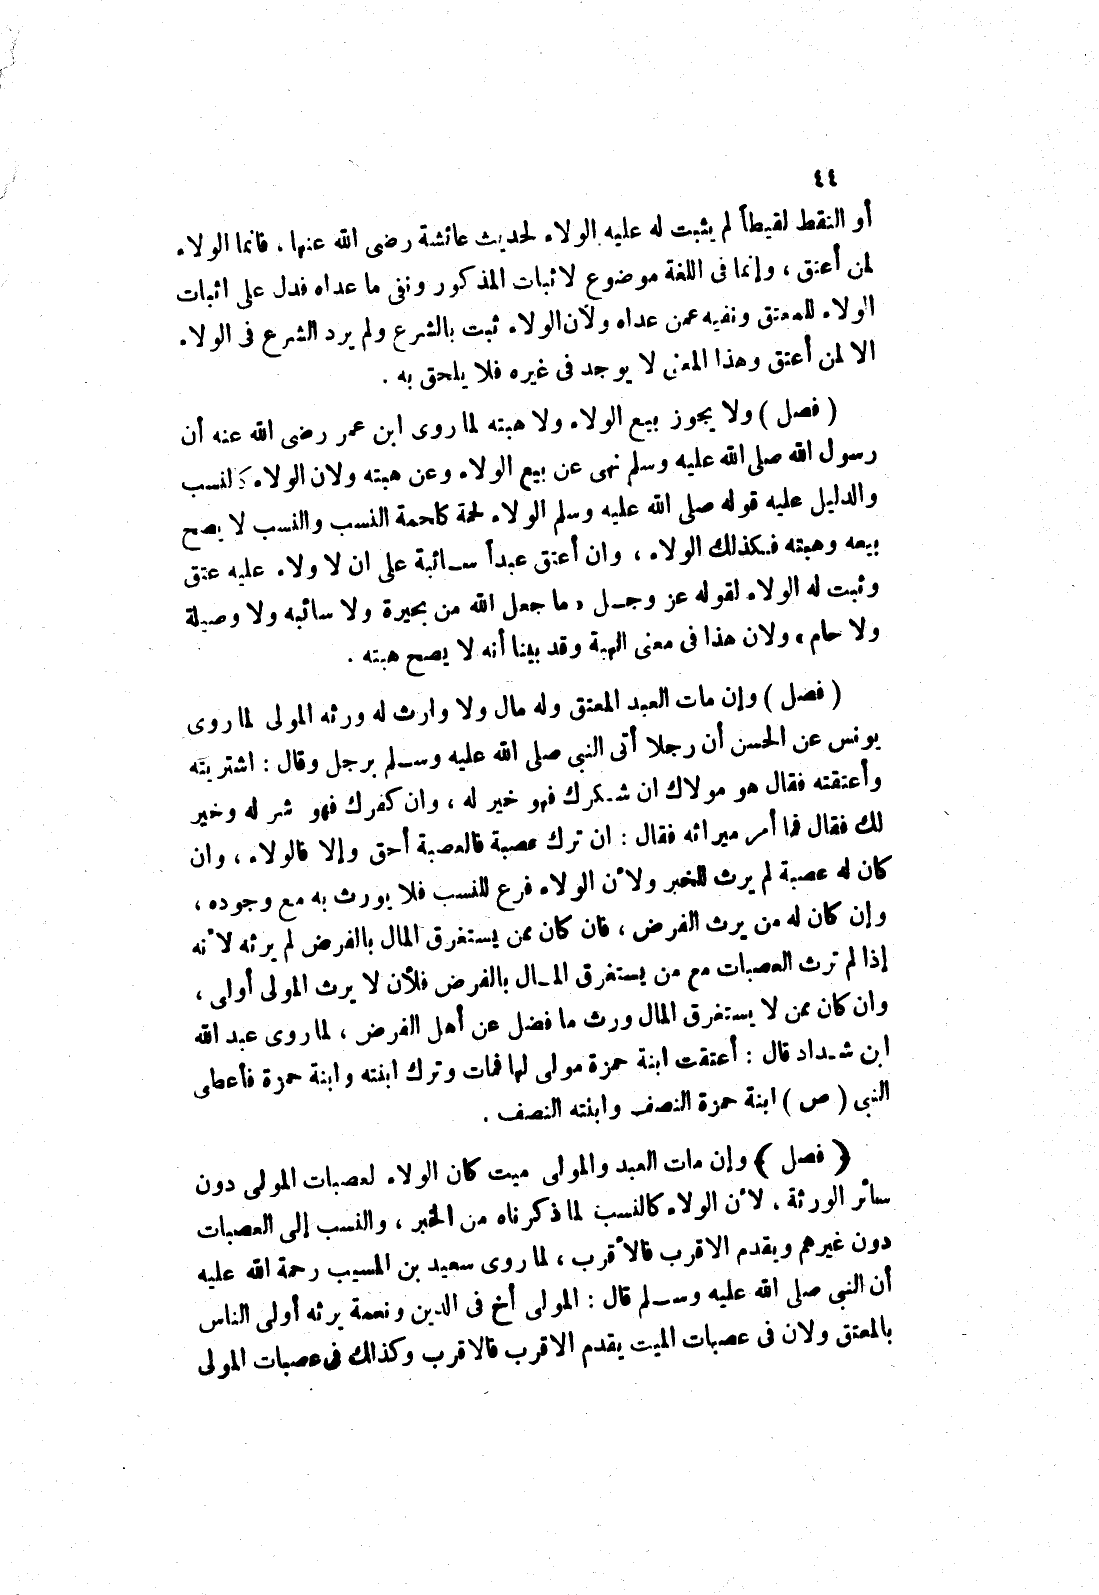 ٤٤
أو التقط لقيطاً لم يثبت له عليه الولاء لحديث عائشة رضى الله عنها . فانما الولاء
لمن أعتق ، وإنما فى اللغة موضوع لاثبات المذكور ونفى ما عداه فدل على اثبات
الولاء للمعتق ونفيه عمن عداه ولأن الولاء ثبت بالشرع ولم يرد الشرع فى الولاء
الا لمن أعتق وهذا المعنى لا يوجد فى غيره فلا يلحق به .
( فصل ) ولا يجوز بيع الولاء ولا هبته لما روى ابن عمر رضى الله عنه أن
رسول الله صلى الله عليه وسلم نهى عن بيع الولاء وعن هبته ولان الولاء كالنسب
والدليل عليه قوله صلى الله عليه وسلم الولاء لحمة كلحمة النسب والنسب لا يصح
بيعه وهبته فكذلك الولاء ، وان أعتق عبداً سائبة على ان لا ولاء عليه عتق
وثبت له الولاء لقوله عز وجل « ما جعل الله من بحيرة ولا سائبه ولا وصيلة
ولا حام » ولان هذا فى معنى الهبة وقد بينا أنه لا يصح هبته .
( فصل ) وإن مات العبد المعتق وله مال ولا وارث له ورثه المولى لما روى
يونس عن الحسن أن رجلا أتى النبى صلى الله عليه وسلم برجل وقال : اشتريته
وأعتقته فقال هو مولاك ان شكرك فهو خير له ، وان كفرك فهو شر له وخير
لك فقال فما أمر ميراثه فقال : ان ترك عصبة فالعصبة أحق وإلا فالولاء ، وان
كان له عصبة لم يرث للخبر ولأن الولاء فرع للنسب فلا يورث به مع وجوده ،
وإن كان له من يرث الفرض ، فان كان ممن يستغرق المال بالفرض لم يرثه لأنه
إذا لم ترث العصبات مع من يستغرق المال بالفرض فلأن لا يرث المولى أولى ،
وان كان ممن لا يستغرق المال ورث ما فضل عن أهل الفرض ، لما روى عبد الله
ابن شداد قال : أعتقت ابنة حمزة مولى لها فمات وترك ابنته وابنة حمزة فأعطى
النبى ( ص ) ابنة حمزة النصف وابنته النصف .
( فصل ) وإن مات العبد والمولى ميت كان الولاء لعصبات المولى دون
سائر الورثة . لأن الولاء كالنسب لما ذكرناه من الخبر ، والنسب إلى العصبات
دون غيرهم ويقدم الاقرب فالأقرب ، لما روى سعيد بن المسيب رحمة الله عليه
أن النبى صلى الله عليه وسلم قال : المولى أخ فى الدين ونعمة يرثه أولى الناس
بالمعتق ولان فى عصبات الميت يقدم الاقرب فالاقرب وكذالك فى عصبات المولى